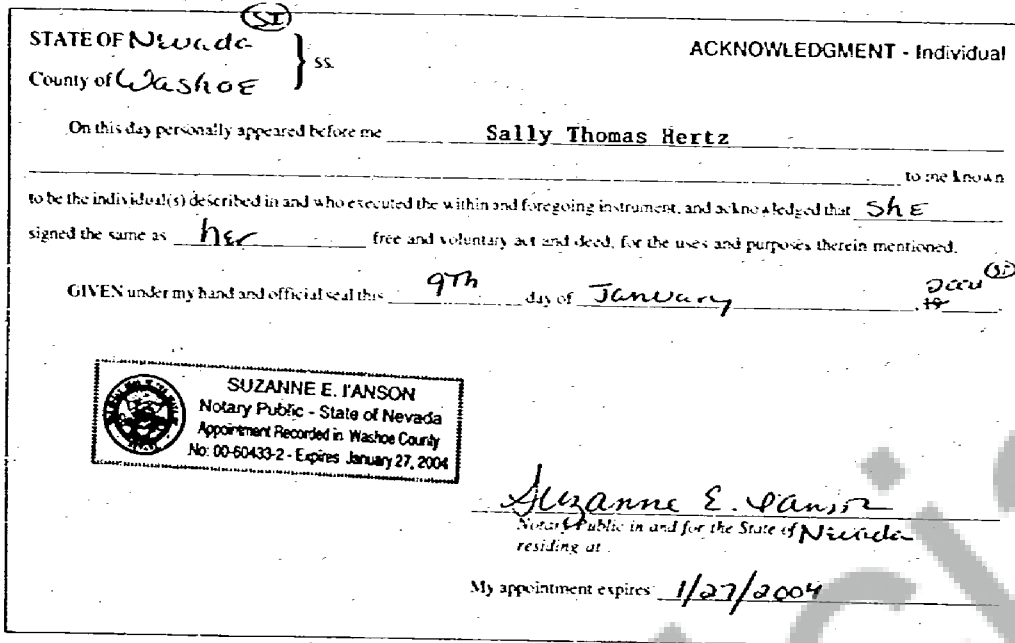 (SI)
STATE OF Nevada
County of Washoe
} ss.
ACKNOWLEDGMENT - Individual
On this day personally appeared before me Sally Thomas Hertz
to me known
to be the individual(s) described in and who executed the within and foregoing instrument, and acknowledged that She
signed the same as her free and voluntary act and deed, for the uses and purposes therein mentioned.
GIVEN under my hand and official seal this 9Th day of January , 19
SUZANNE E. I'ANSON
Notary Public - State of Nevada
Appointment Recorded in Washoe County
No: 00-60433-2 - Expires January 27, 2004
Suzanne E. I'anson
Notary Public in and for the State of Nevada
residing at
My appointment expires 1/27/2004